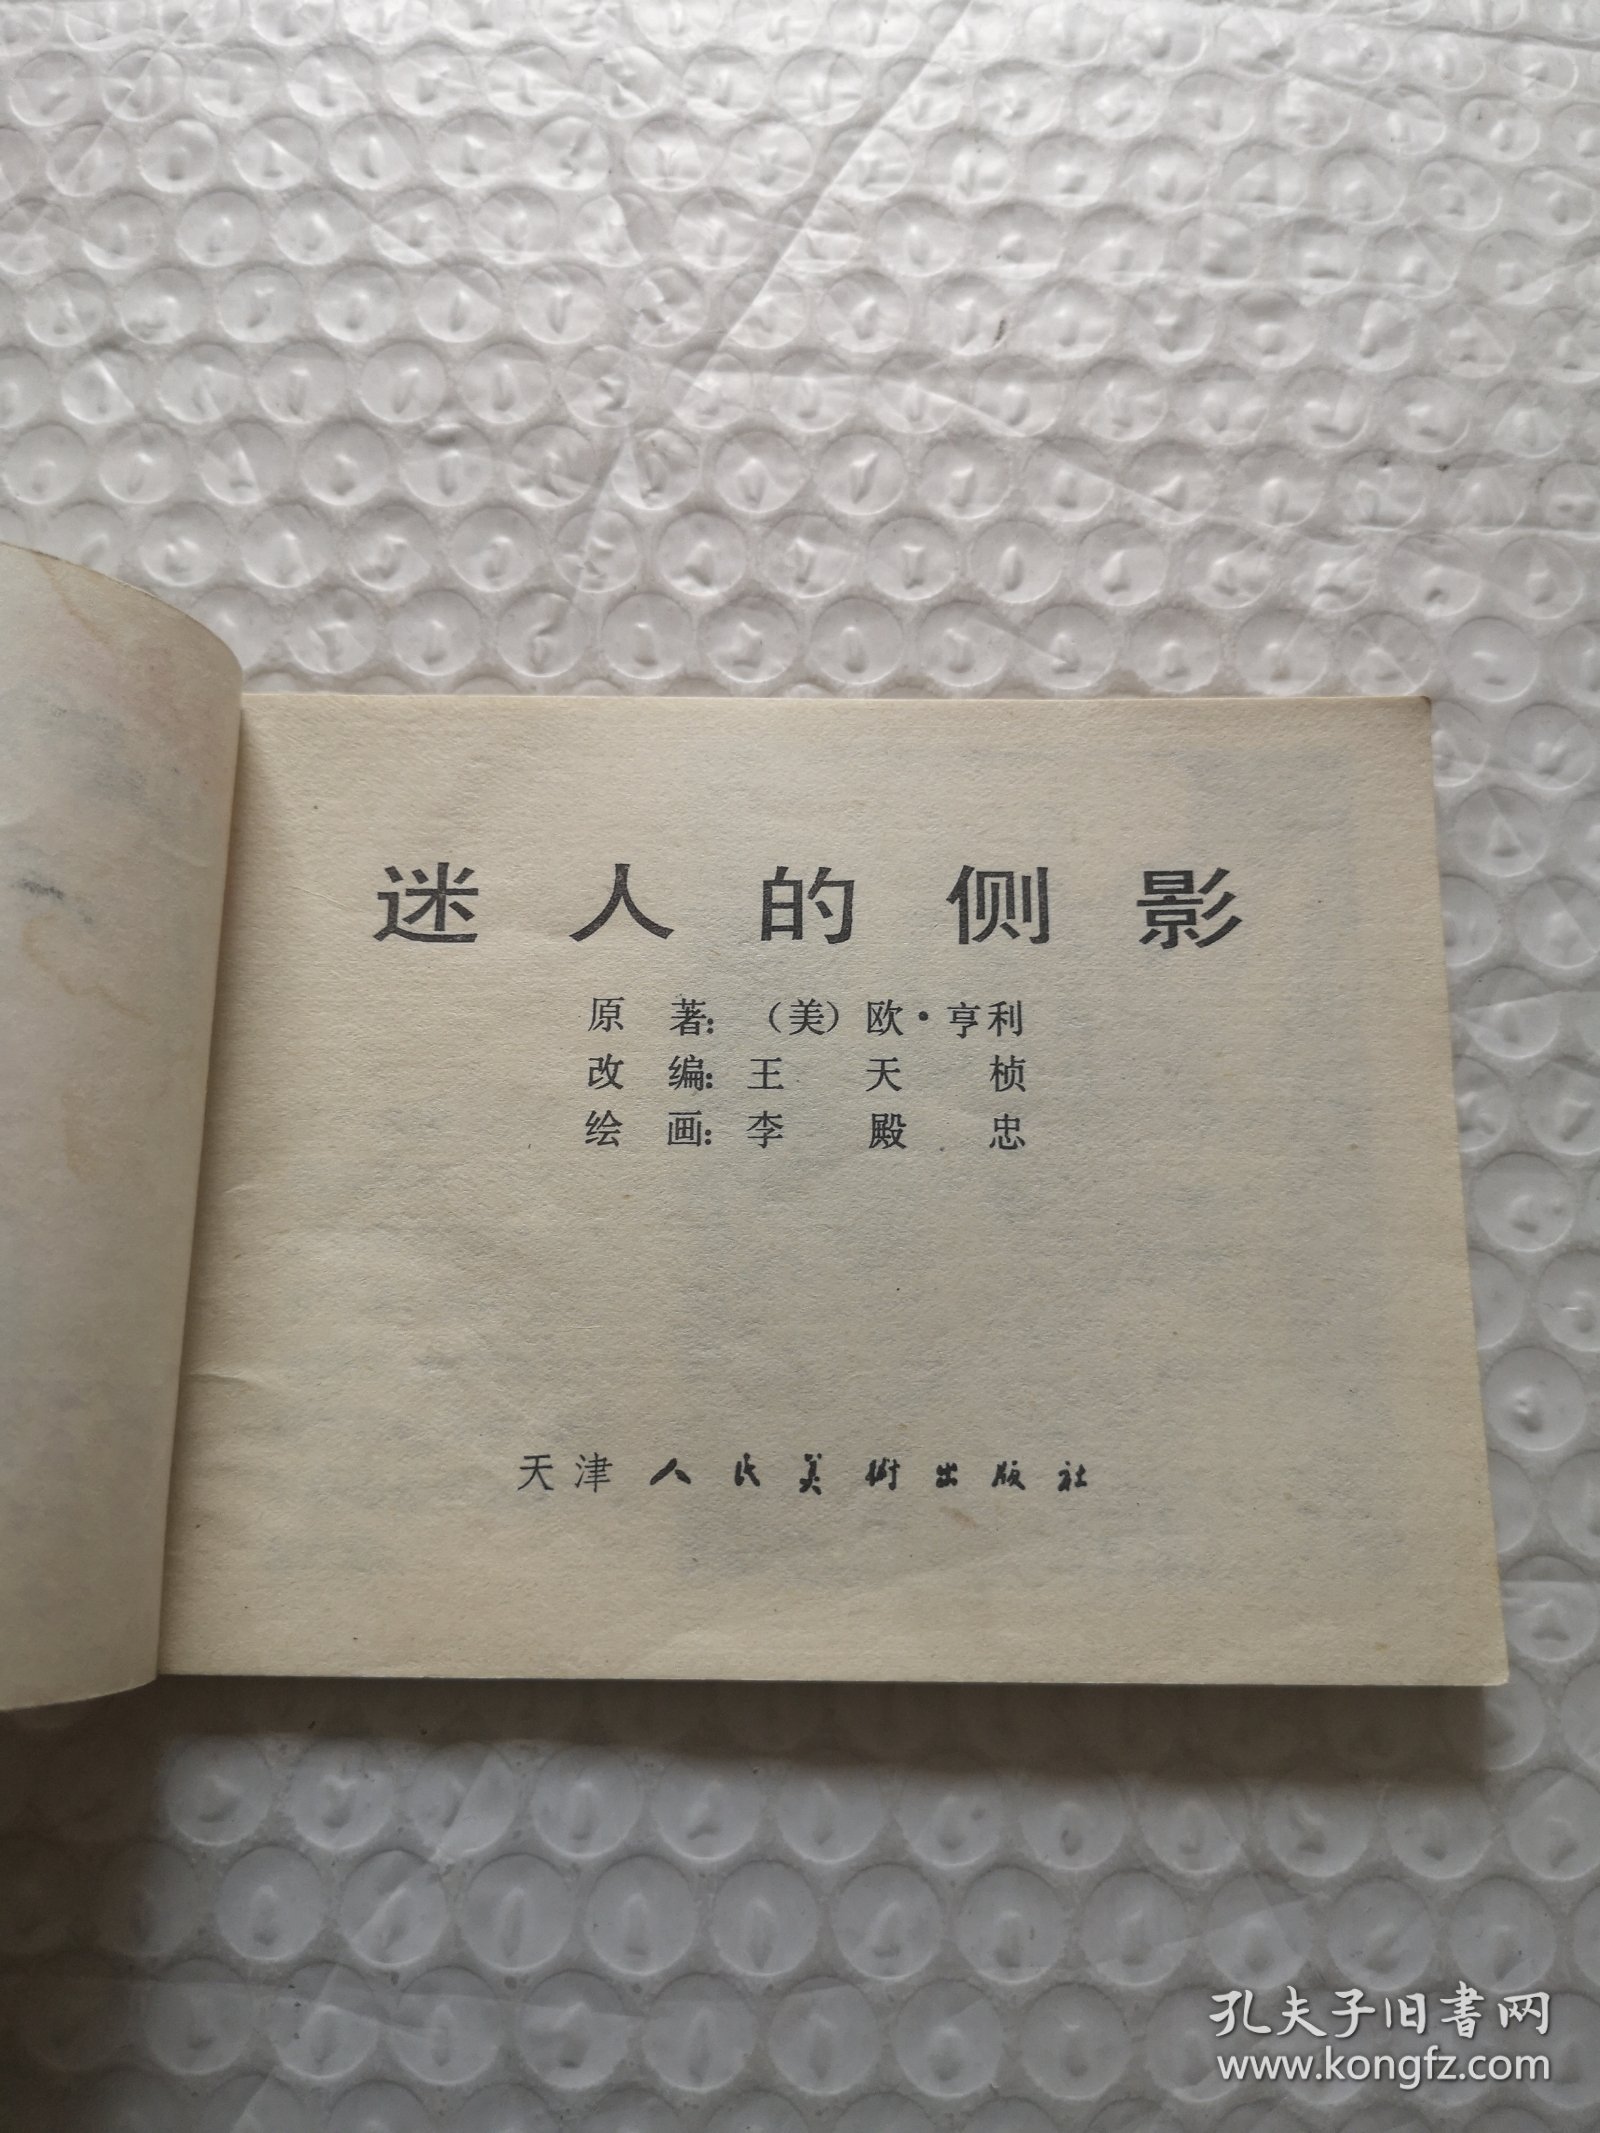 迷人的侧影
原著：（美）欧·亨利
改编：王天桢
绘画：李殿忠
天津人民美術出版社
孔夫子旧书网
www.kongfz.com